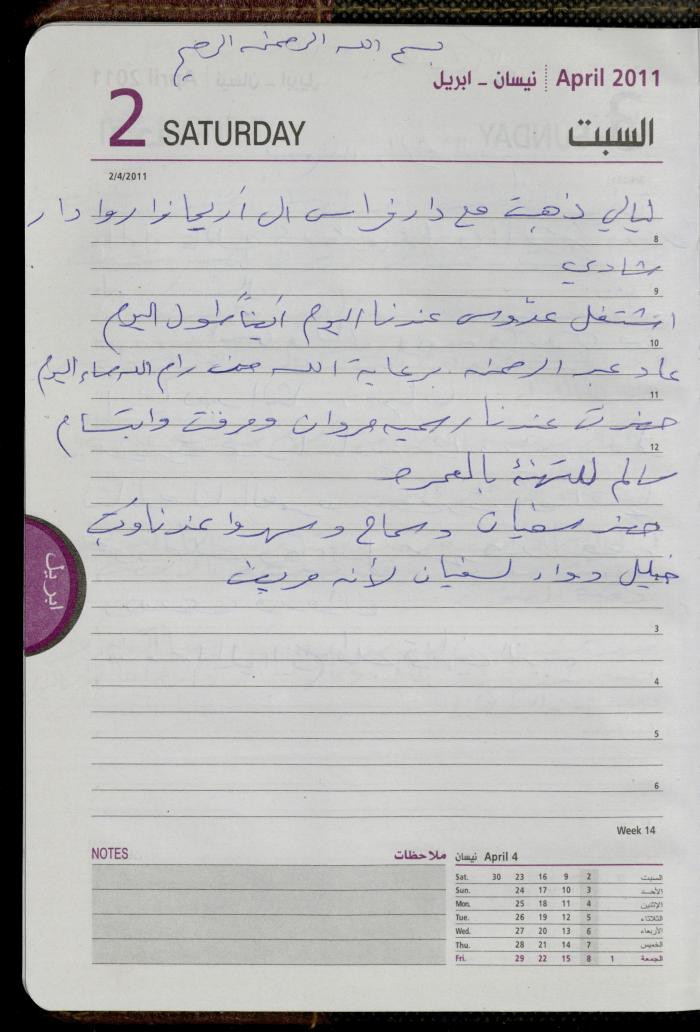 بسم الله الرحمن الرحيم
نيسان - ابريل April 2011
2 SATURDAY السبت
2/4/2011
ليالي ذهبت مع دار فراس الى أريحا زاروا دار
8
شادي
9
اشتغل عدوس عندنا اليوم أيضاً طول اليوم
10
عاد عبد الرحمن برعاية الله من رام الله مساء اليوم
11
حضرت عندنا سميه مروان ومرفت وابتسام
12
سالم للتهنئة بالعمره
حضر سفيان وسماح وسهروا عندنا وكتب
خليل دواء لسفيان لأنه مريض
ابريل
3
4
5
6
Week 14
NOTES ملاحظات
April 4 نيسان
Sat. 30 23 16 9 2 السبت
Sun. 24 17 10 3 الأحد
Mon. 25 18 11 4 الإثنين
Tue. 26 19 12 5 الثلاثاء
Wed. 27 20 13 6 الأربعاء
Thu. 28 21 14 7 الخميس
Fri. 29 22 15 8 1 الجمعة